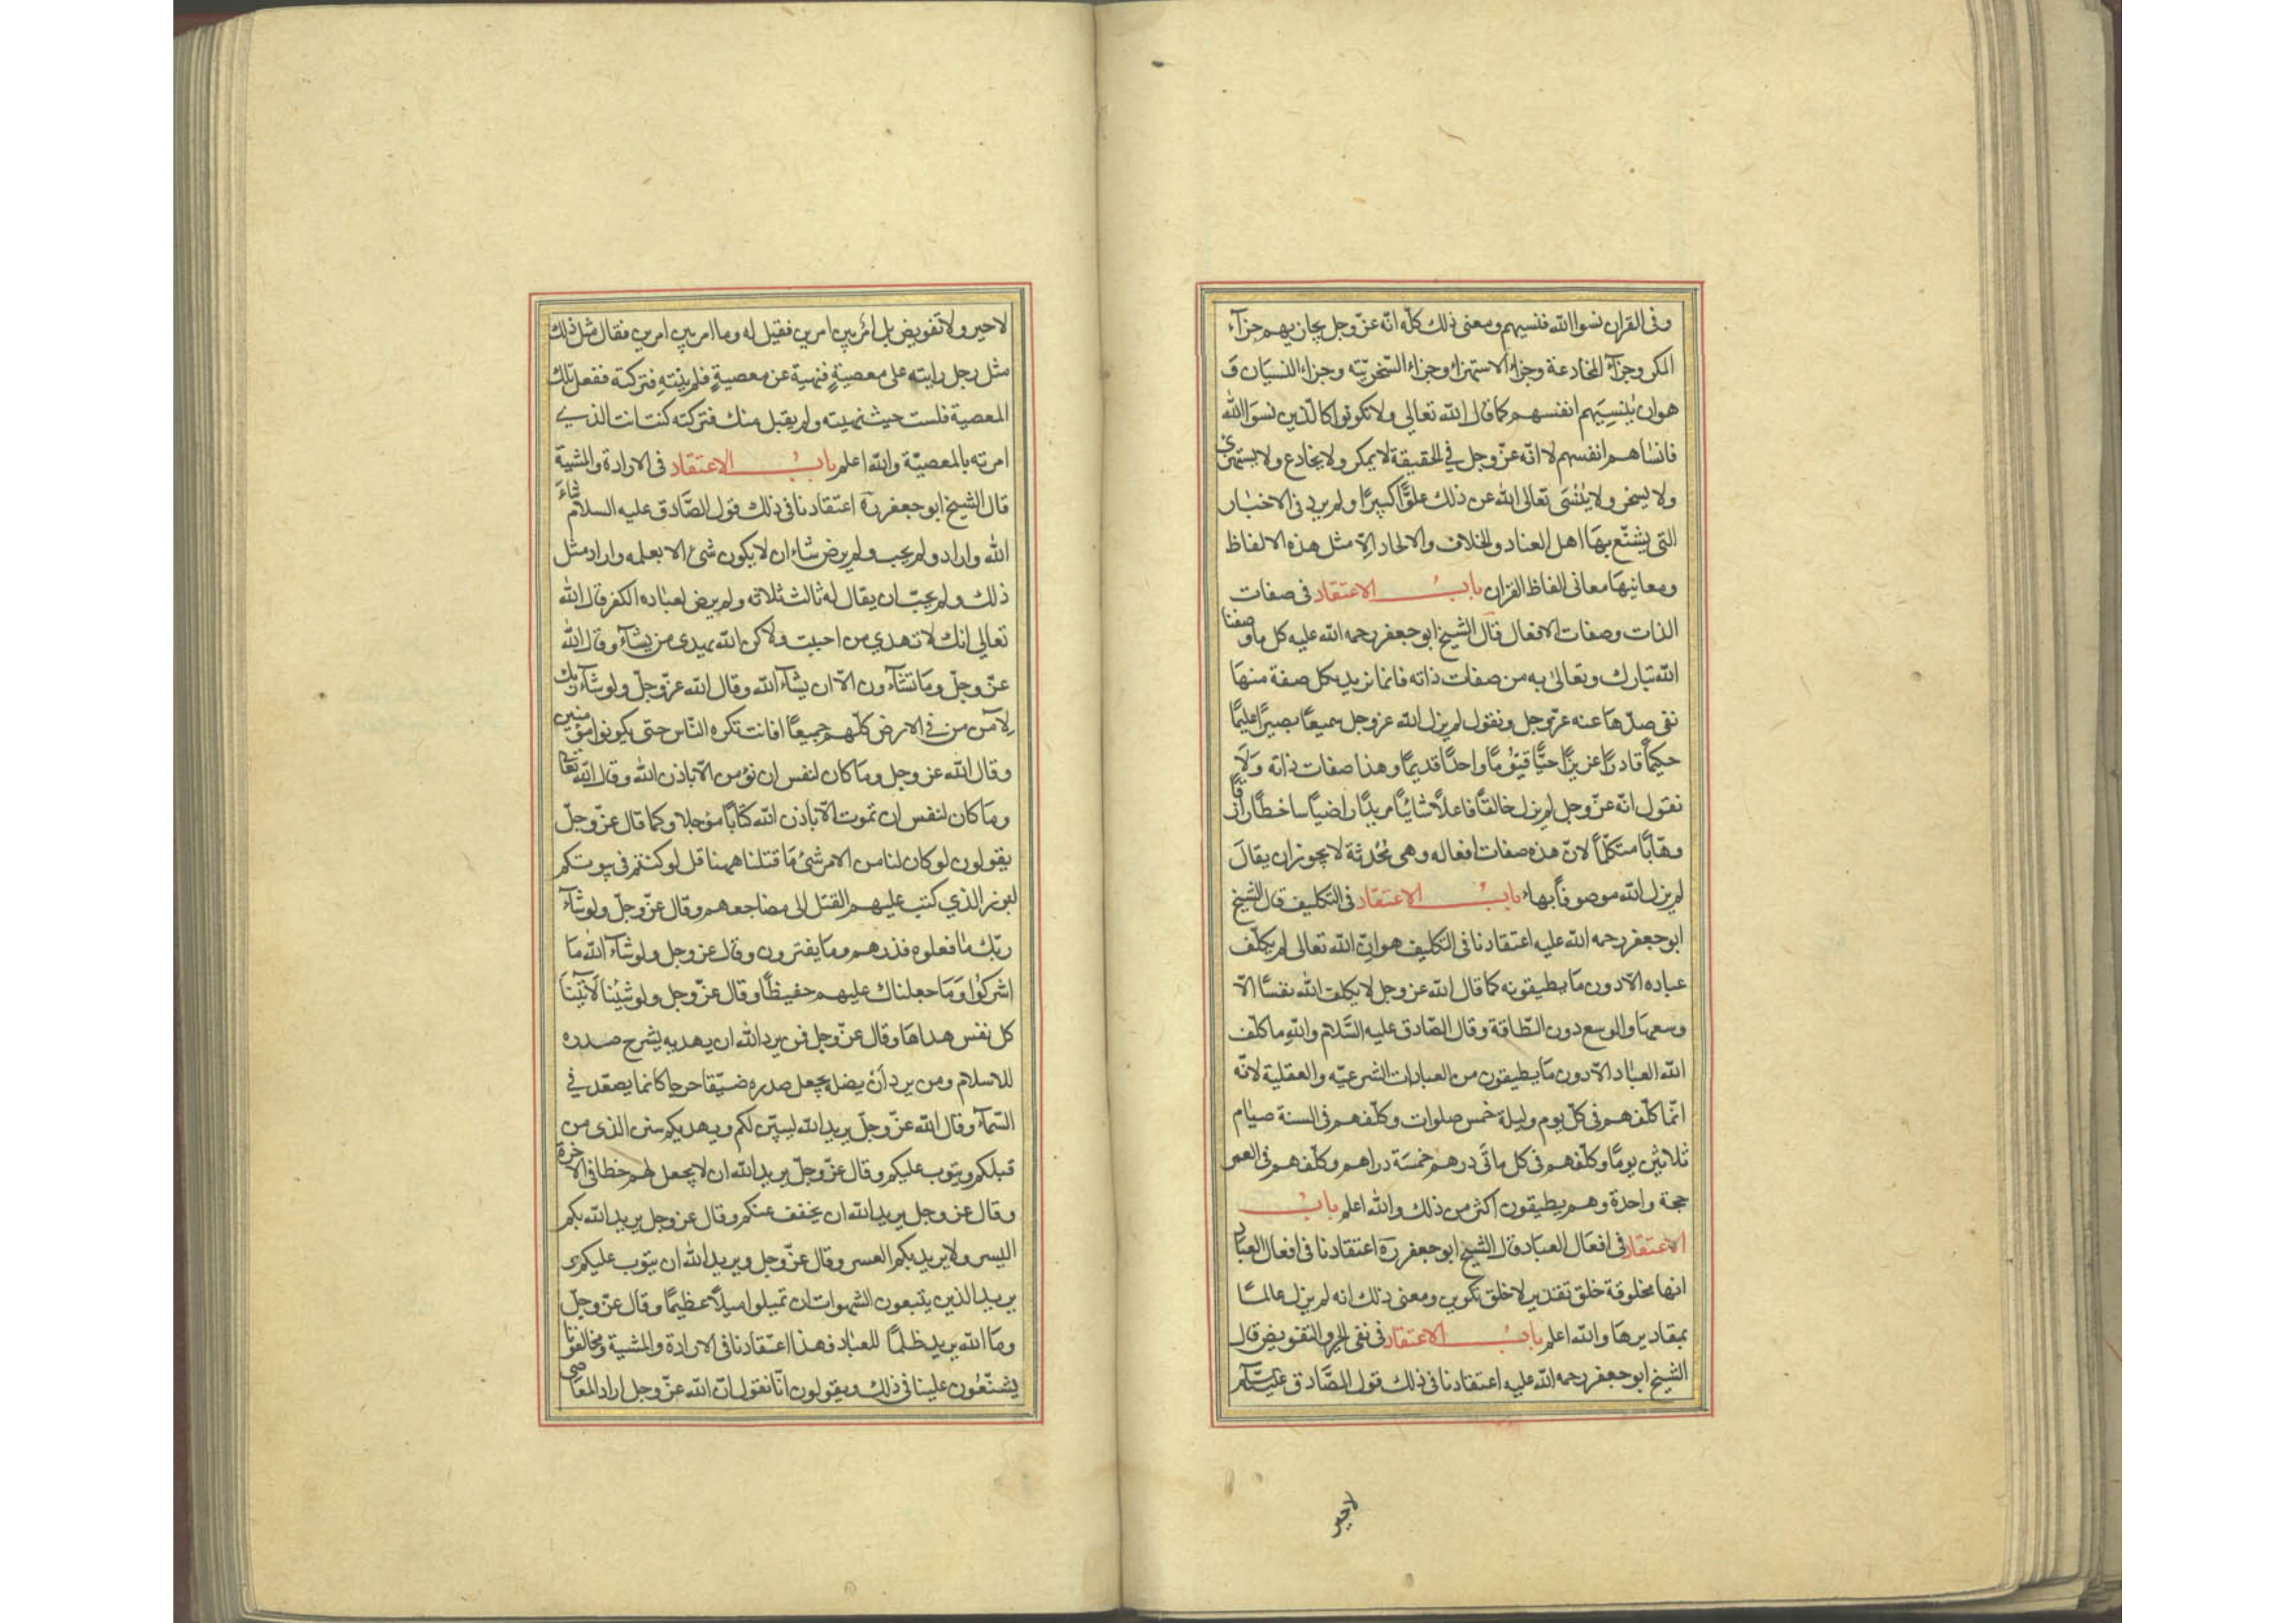 وفى القران نسوا الله فنسيهم ومعنى ذلك كله انّه عزّ وجل يجازيهم جزآء
المكر وجزآء المخادعة وجزاء الاستهزاء وجزاء السّخريّته وجزاء النسيان وَ
هو ان يُنسِيَهم انفسهم كما قال الله تعالى ولا تكونوا كالّذين نسوَا الله
فانسٰاهم انفسهم لا انّه عزّ وجل في الحقيقة لا يمكر ولا يخادع ولا يستهزئ
ولا يسخر ولا ينسَى تعالى الله عن ذلك علوًّا كبيرًا ولم يرد فى الاخبٰار
التى يشنّع بهَا اهل العناد والخلاف والالحاد الّا مثل هذه الالفاظ
ومعانيهَا معانى الفاظ القران بابُ الاعتقاد فى صفات
الذات وصفات الافعال قال الشيخ ابو جعفر رحمه الله عليه كل ما وصفنا
الله تبارك وتعالىٰ به من صفات ذاته فانما نريد بكل صفة منهَا
نفى ضدّهَا عنه عزّ وجل ونقول لم يزل الله عز وجل سميعًا بصيرًا عليمًا
حكيمًا قادرًا عزيزًا حيًّا قيّومًا واحدًا قديمًا وهذا صفات ذاته وَلَا
نقول انّه عزّ وجل لم يزل خالقًا فاعلًا شائيًا مريدًا راضيًا ساخطًا رازقًا
وهّابًا متكلّمًا لانّ هذه صفات افعاله وهى مُحْدثة لا يجوز ان يقالَ
لم يزل الله موصوفًا بهاء بابُ الاعتقاد فى التكليف قال الشيخ
ابو جعفر رحمه الله عليه اعتقادنا فى التكليف هو انّ الله تعالى لم يكلّف
عباده الّا دون مَا يطيقونه كما قال الله عز وجل لا يكلف الله نفسًا الّا
وسعهَا والوسع دون الطّاقة وقال الصّادق عليه السَّلام والله ما كلف
الله العبٰاد الّا دون مَا يطيقون من العبادات الشرعيّه والعقلية لانّه
انّما كلّفهم فى كلّ يوم وليلة خمس صلوات وكلّفهم فى السنة صيٰام
ثلاثين يومًا وكلّفهم فى كل مائتى درهم خمسَة دراهم وكلّفهم فى العمر
حجة واحدة وهم يطيقون اكثر من ذلك والله اعلم بابُ
الاعتقاد فى افعَال العبَاد قال الشيخ ابو جعفر رَه اعتقادنا فى افعال العبٰاد
انها مخلوقة خلق تقدير لا خلق تكوين ومعنى ذلك انه لم يزل عالمًا
بمقاديرهَا والله اعلم بابُ الاعتقاد فى نفى الجبر والتفويض قال
الشيخ ابو جعفر رحمه الله عليه اعتقادنا فى ذلك قول الصَّادق عليه السّلام
لا جبر
لا جبر ولا تفويض بل امْر بين امرين فقيل له وما امر بين امرين فقال مثل ذلك
مثل رجل رايته على معصيةٍ فنهيته عن معصيةٍ فلم ينتهِ فتركته ففعل تلك
المعصية فلست حيث نهيته ولم يقبل منك فتركته كنت انت الذي
امرته بالمعصيّة والله اعلم بابُ الاعتقاد فى الارادة والمشيّة
قال الشيخ ابو جعفر رَه اعتقادنا فى ذلك قول الصَّادق عليه السلام شاءَ
الله واراد ولم يحب ولم يرض شاء ان لا يكون شئ الا بعلمه واراد مثل
ذلك ولم يحبّ ان يقال له ثالث ثلاثه ولم يرض لعبٰاده الكفر قال الله
تعالى انك لا تهدي من احببت ولاكن الله يهدى من يشآء وقال الله
عزّ وجلّ ومَا تشآءون الّا ان يشآء الله وقال الله عزّ وجلّ ولو شآء ربّك
لآمن من في الارض كلّهم جميعًا افانت تكره النّاس حتى يكونوا مؤمنين
وقال الله عز وجل ومَا كان لنفس ان تؤمن الّا باذن الله وقال الله تعا
ومَا كان لنفس ان تموت الّا باذن الله كتابًا مؤجلا وكما قال عزّ وجلّ
يقولون لو كان لنا من الامر شئ مَا قتلنا ههنا قل لو كنتم فى بيوتكم
لبرز الذي كتب عليهم القتل الى مضاجعهم وقال عزّ وجلّ ولو شآء
ربّك مٰا فعلوه فذرهم ومَا يفترون وقال عز وجل ولو شآء الله مَا
اشركوا وَمَا جعلناك عليهم حفيظًا وقال عزّ وجل ولو شئنا لَآتَيْنَا
كل نفس هداهَا وقال عزّ وجل فمن يرد الله ان يهديه يشرح صدره
للاسلام ومن يرد أَنْ يضله يجعل صدره ضيّقا حرجا كانما يصعّد في
السّمآء وقال الله عزّ وجلّ يريد الله ليبيّن لكم ويهديكم سنن الذى من
قبلكم ويتوب عليكم وقال عزّ وجلّ يريد الله ان لا يجعل لهم حظا فى الاخرة
وقال عز وجل يريد الله ان يخفف عنكم وقال عز وجل يريد الله بكم
اليسر ولا يريد بكم العسر وقال عزّ وجل ويريد الله ان يتوب عليكم وى
يريد الذين يتبعون الشهوات ان تميلوا ميلًا عظيمًا وقال عزّ وجلّ
ومَا الله يريد ظلمًا للعبٰاد فهذا اعتقادنا فى الارادة والمشية ومخالفونا
يشنّعون علينا فى ذلك ويقولون انّا نقول انّ الله عزّ وجل اراد المعاصى